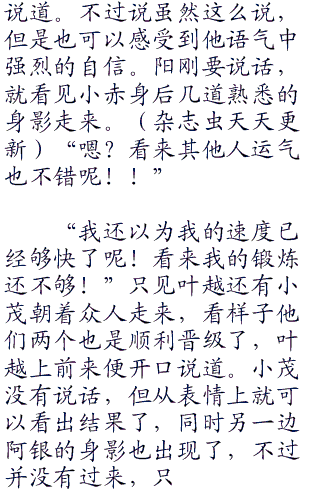 说道。不过说虽然这么说，
但是也可以感受到他语气中
强烈的自信。阳刚要说话，
就看见小赤身后几道熟悉的
身影走来。（杂志虫天天更
新）“嗯？看来其他人运气
也不错呢！！”
“我还以为我的速度已
经够快了呢！看来我的锻炼
还不够！”只见叶越还有小
茂朝着众人走来，看样子他
们两个也是顺利晋级了，叶
越上前来便开口说道。小茂
没有说话，但从表情上就可
以看出结果了，同时另一边
阿银的身影也出现了，不过
并没有过来，只